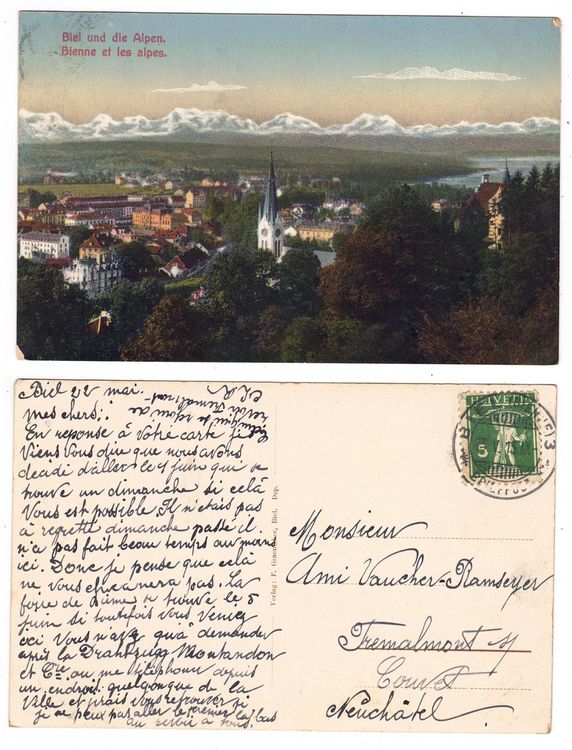 Biel und die Alpen.
Bienne et les alpes.
Biel 22 mai.
mes chers!
En reponse à votre carte je
Viens Vous due que nous avons
decidi d'aller le 4 juin qui se
trouve un dimanche si celà
Vous est possible Il n'etais pas
à regretté dimanche passé il
n'a pas fait beau temps au moins
ici. Donc je pense que celà
ne vous chicanera pas. La
foire de Bienne se trouve le 5
juin si toutefois vous Veniez
ici Vous n'avez qu'a demander
après la Drahtzug Montandon
et Cie ou me téléphoner depuis
un endroit quelqonque de la
Ville et j'irais vous retrouver si
je ne peux pas aller le premier là bas
au revoir à tous.
HELVETIA
5
3
Verlag: F. Biel. Dep.
Monsieur
Ami Vaucher-Ramseyer
Tremalmont s/
Couvet
Neuchâtel